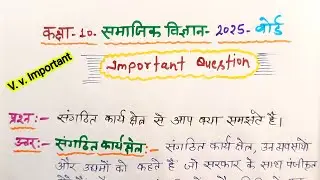 कक्षा-10. सामाजिक विज्ञान- 2025- बोर्ड
V. v. Important
Important Question
प्रश्न:- संगठित कार्य क्षेत्र से आप क्या समझते है।
उत्तर:- संगठित कार्य क्षेत्र:- संगठित कार्य क्षेत्र, उन व्यवसायों
और उद्यमों को कहते हैं जो सरकार के साथ पंजीकृत